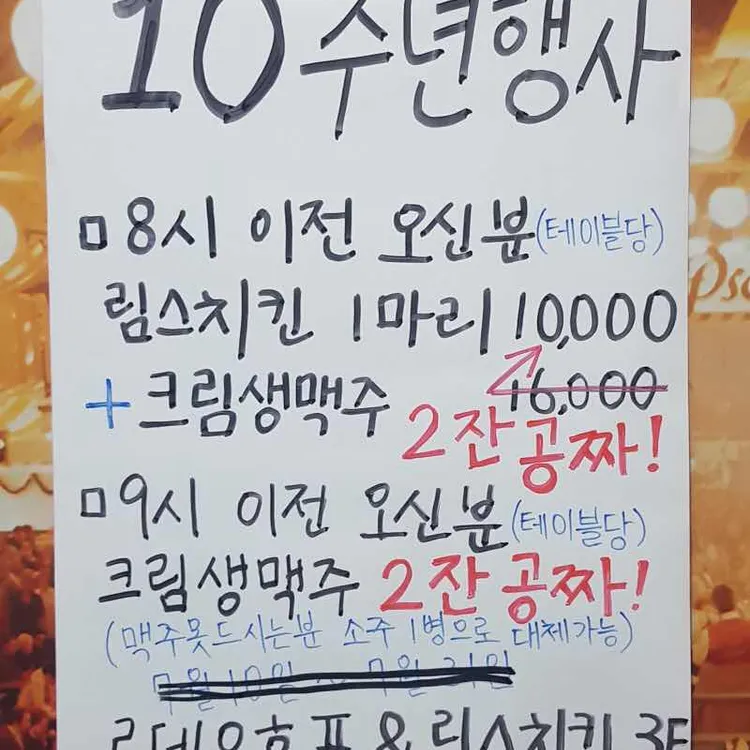 10주년행사
□8시 이전 오신분(테이블당)
림스치킨 1마리 10,000
16,000
+크림생맥주 2잔공짜!
□9시 이전 오신분(테이블당)
크림생맥주 2잔공짜!
(맥주못드시는분 소주 1병으로 대체가능)
& 림스치킨 3F